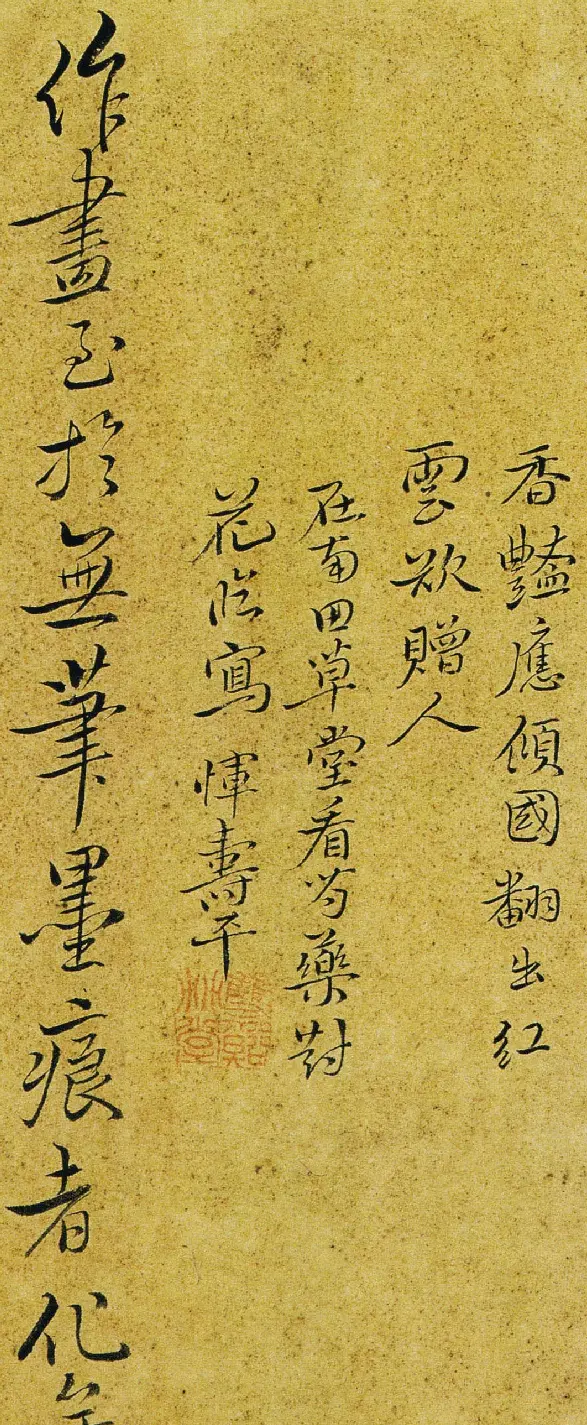 香豔應傾國翻出紅
雲欲贈人
在南田草堂看芍藥對
花臨寫 惲壽平
作畫至於無筆墨痕者化